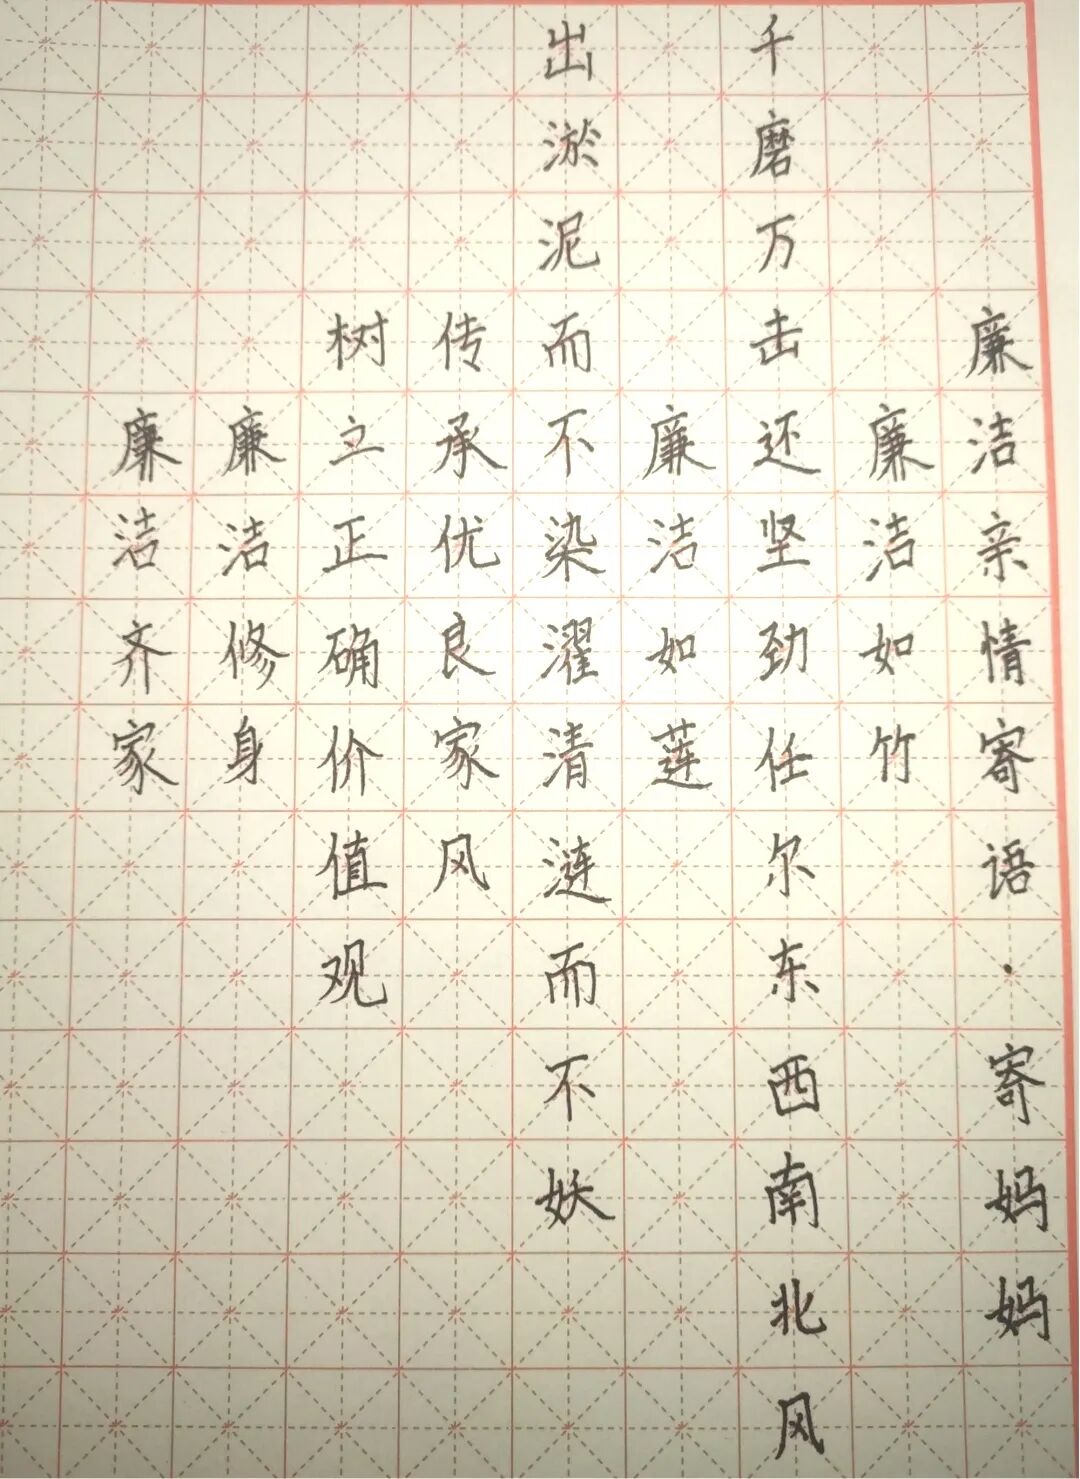 廉洁亲情寄语·寄妈妈
廉洁如竹
千磨万击还坚劲任尔东西南北风
廉洁如莲
出淤泥而不染濯清涟而不妖
传承优良家风
树立正确价值观
廉洁修身
廉洁齐家